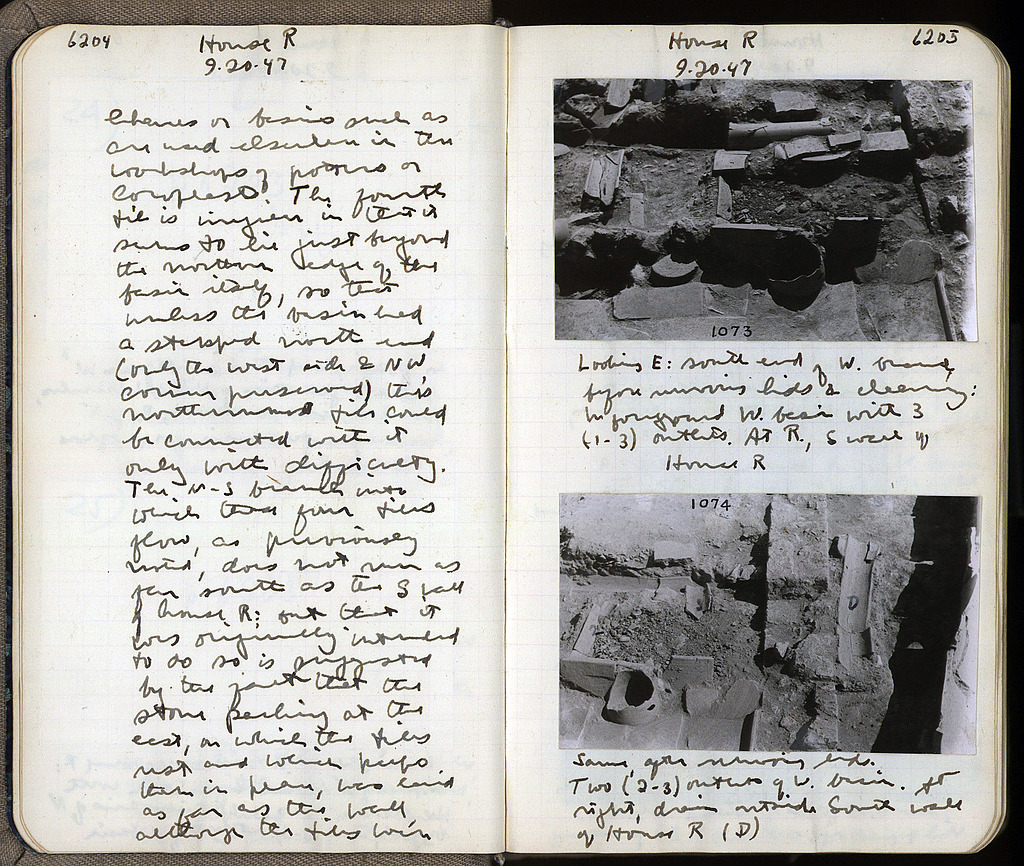 6204
House R
9·20·47
or basins such as
are used elsewhere in the
workshops of potters or
The fourth
tile is in that it
seems to lie just beyond
the northern edge of the
basin itself, so that
unless the basin had
a stepped north end
(only the west side & NW
corner preserved) this
northernmost tile could
be connected with it
only with difficulty.
The N-S branch into
which these four tiles
flow, as previously
noted, does not run as
far south as the S wall
of house R; but that it
was originally intended
to do so is suggested
by the fact that the
stone packing at the
east, on which the tiles
rest and which keeps
them in place, was laid
as far as this wall
although the tiles were
6205
House R
9·20·47
1073
Looking E: south end of W. branch,
before removing lids & cleaning:
In foreground W. basin with 3
(1-3) outlets. At R., S wall of
House R
1074
D
Same, after removing lids.
Two (2-3) outlets of W. basin. At
right, drain outside South wall
of House R (D)